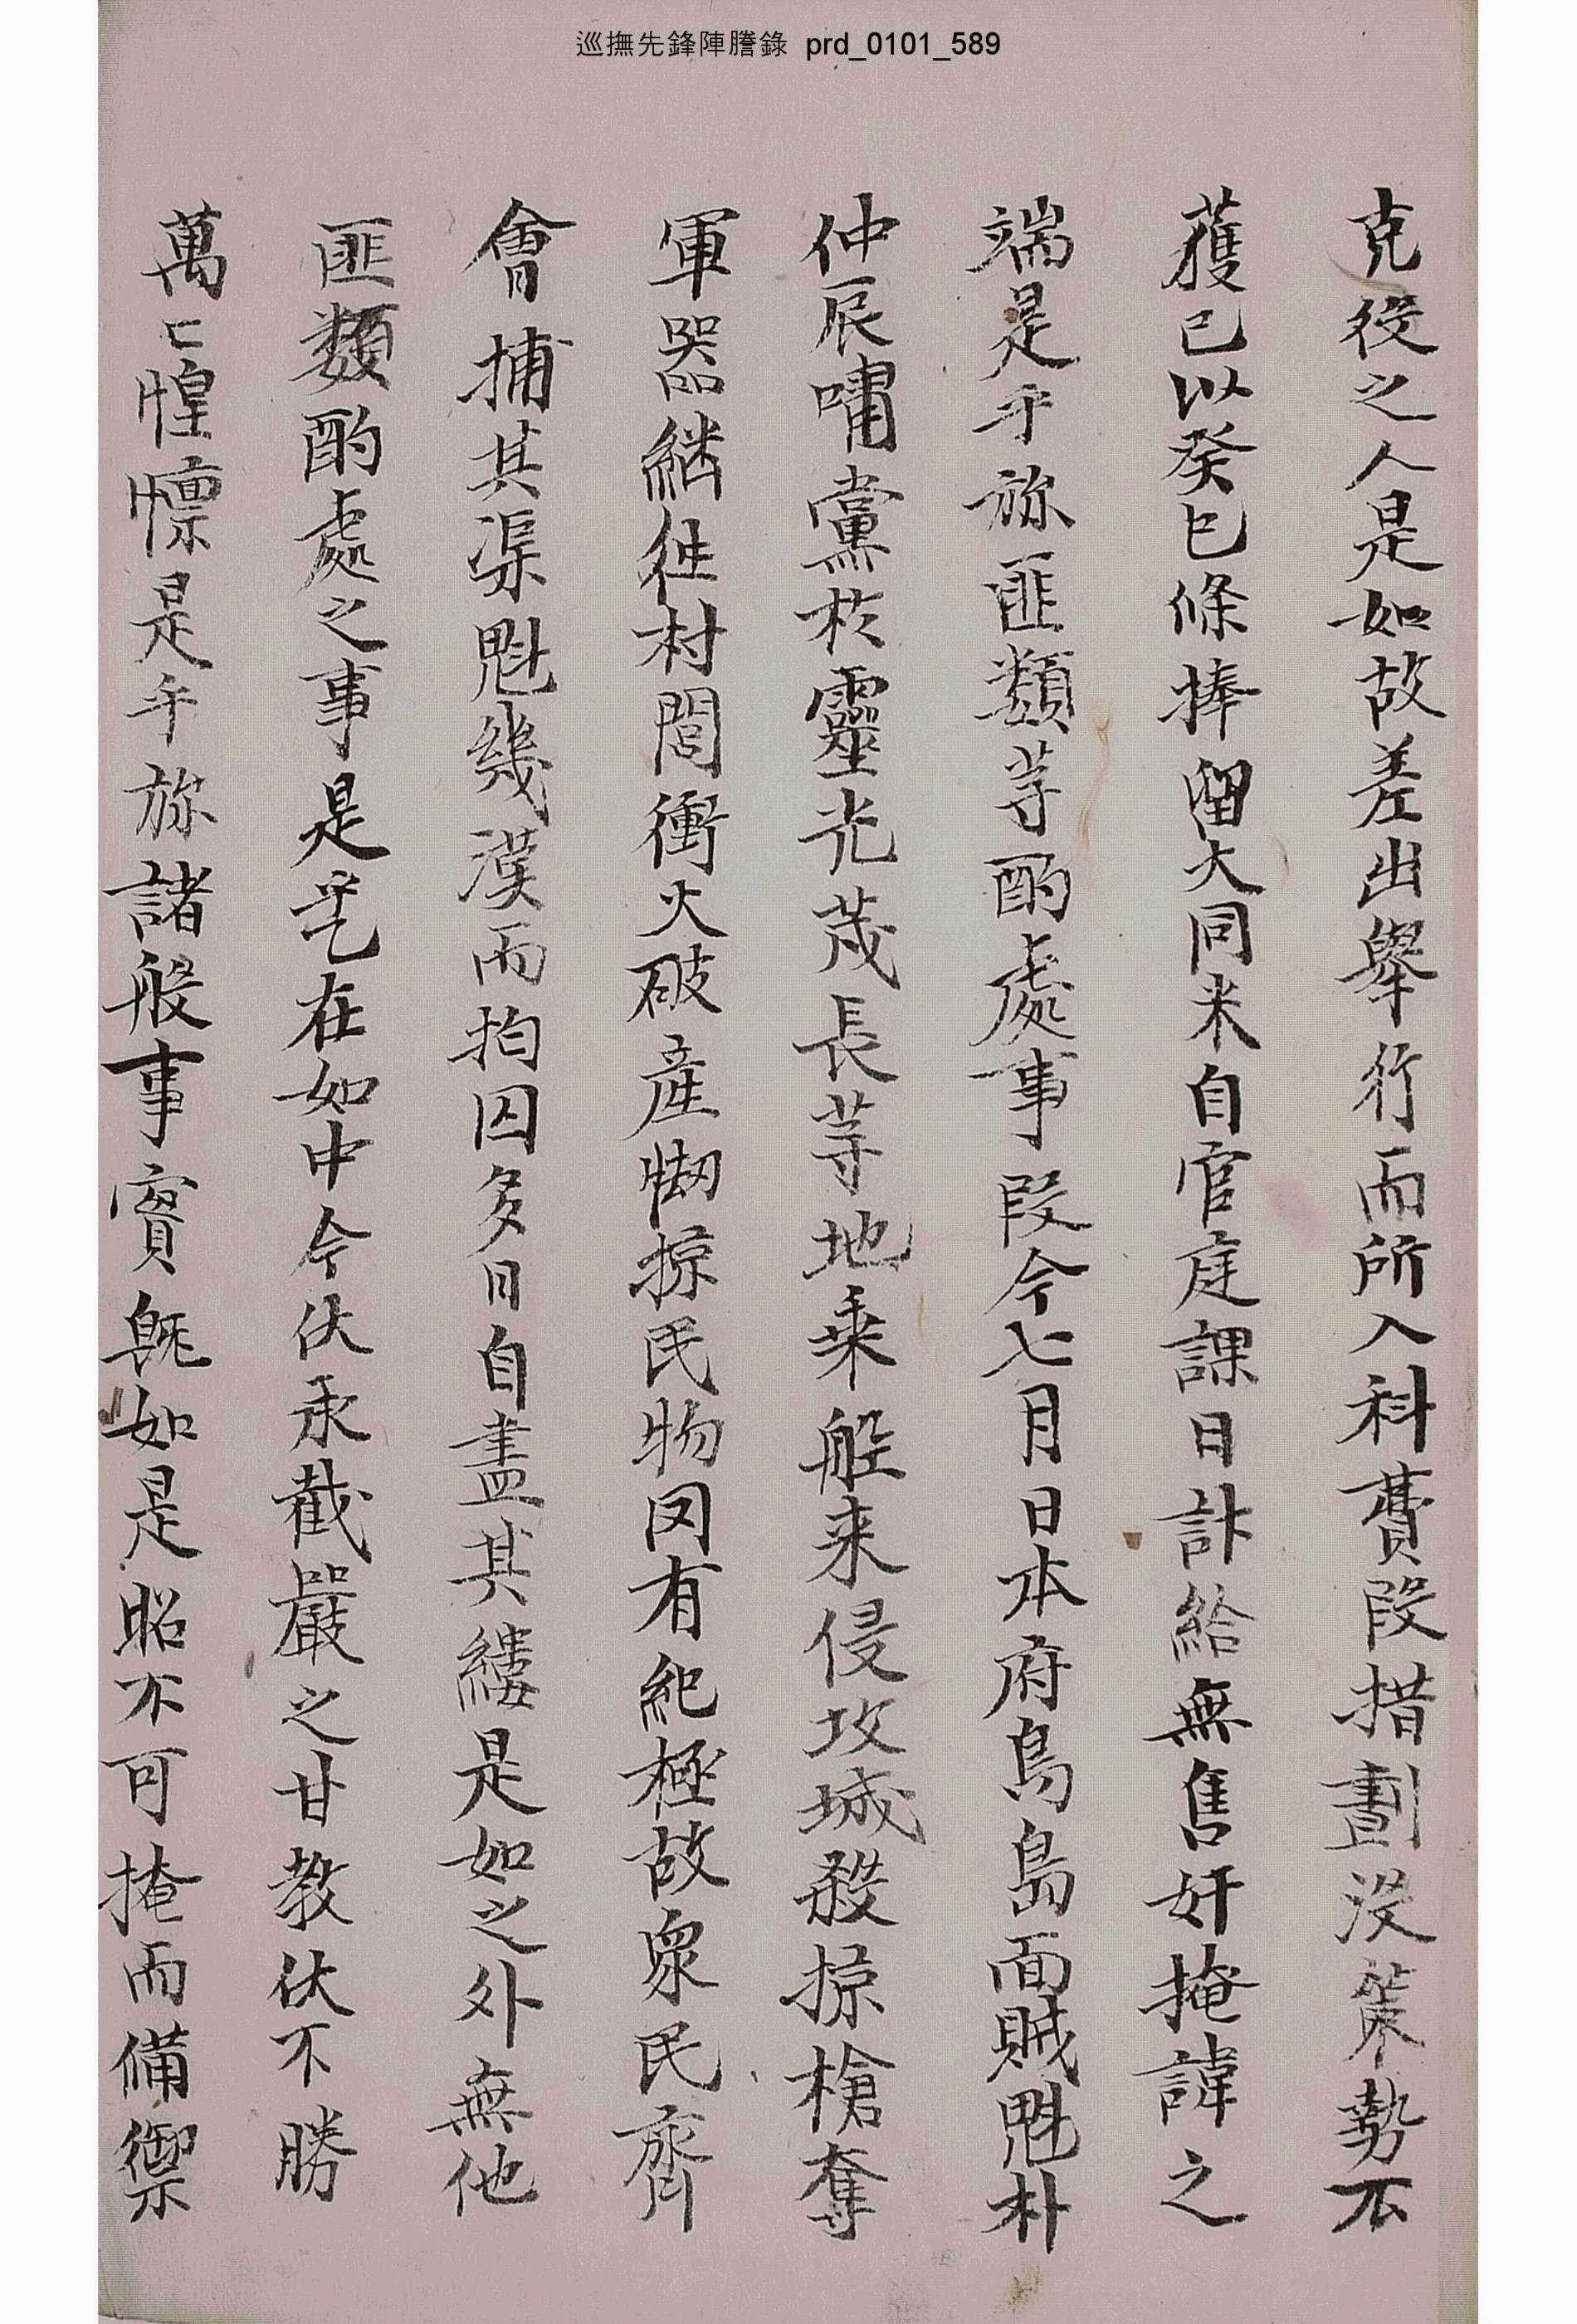 巡撫先鋒陣謄錄 prd_0101_589
克役之人是如故差出擧行而所入科費段措劃沒策勢不
獲已以癸巳條捧留大同米自官庭課日計給無售奸掩諱之
端是乎旀匪類等酌處事段今七月日本府島島面賊魁朴
仲辰嘯黨於靈光茂長等地乗船来侵攻城殺掠槍奪
軍器継徃村閭衝火破産刼掠民物罔有紀極故衆民齊
會捕其渠魁幾漢而拘囚多日自盡其縷是如之外無他
匪類酌處之事是乎乙在如中今伏承截嚴之甘敎伏不勝
萬亡惶懍是乎旀諸般事實旣如是昭不可掩而備禦